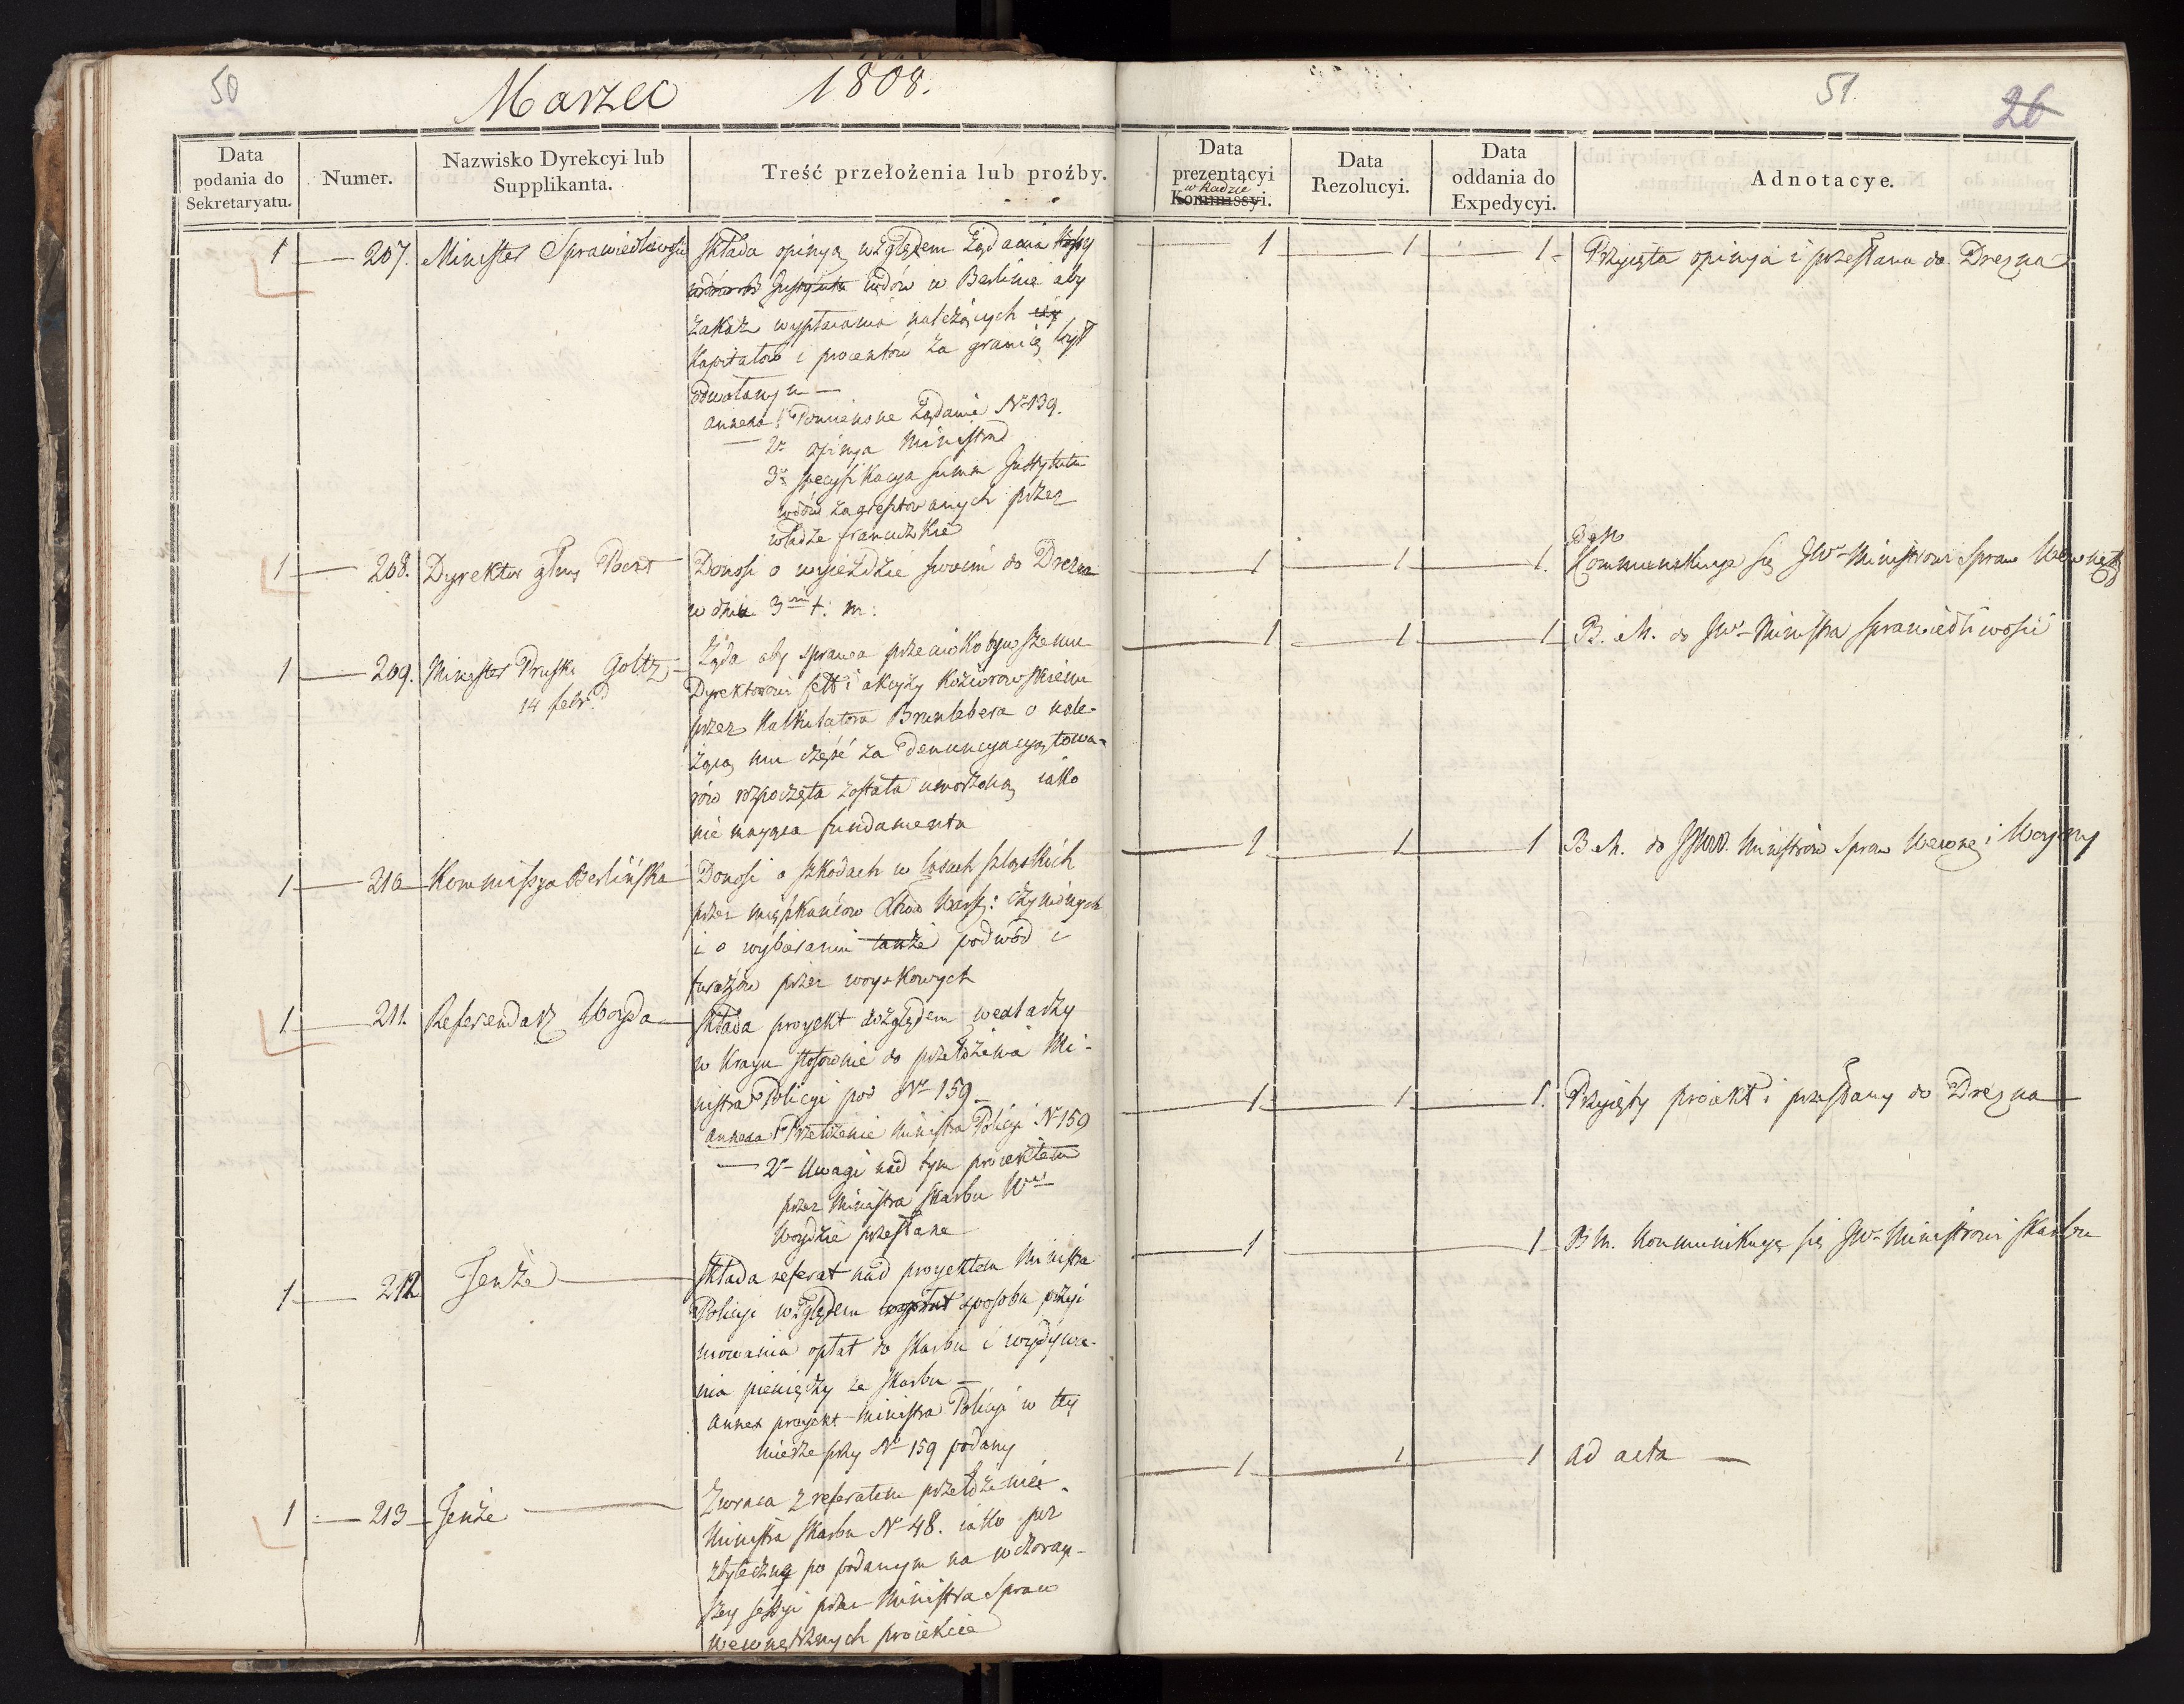 50
Marzec 1808.
51.
26
Data podania do Sekretaryatu.
Numer.
Nazwisko Dyrekcyi lub Supplikanta.
Treść przełożenia lub proźby.
Data prezentącyi w Radzie Kommissyi.
Data Rezolucyi.
Data oddania do Expedycyi.
Adnotacye.
1 — 207. Minister Sprawiedliwości
składa opinją względem żądania
Instytutu wdów w Berlinie aby
zakaz wypłacania należących
kapitałów i procentów za granicę był
odwołanym —
annexa 1° Pomienione żądanie N 139.
— 2° opinja Ministra
3° specyfikacya summ Instytutu
wdów zagrestowanych przez
władze francuzkie
1 — 1 — 1 — Przyięta opinja i przesłana do Drezna
1 — 208. Dyrektor główny Poczt
Donosi o wyieździe swoim do Drezna
w dniu 3 t: m:
1 — 1 — 1. Kommunikuje się JW Ministrowi Spraw Wewnętz
1 — 209. Minister Pruski Goltz
14 febr.
Żąda aby sprawa przeciwko bywszemu
Dyrektorowi cell i akcyzy Koziorowskiemu
przez Kalkulatora o nale-
żącą mu część za denuncyacyą towa-
rów rozpoczęta została umorzoną iako
nie maiąca fundamentu
1 — 1 — 1 B. M. do JW Ministra Sprawiedliwości
1 — 210 Kommissya Berlińska
Donosi o szkodach w lasach szląskich
przez mięszkańców Xtwa Warsz: czynionych
i o wybieraniu także podwód i
furażów przez woyskowych
1 — 1 — 1 B M. do JJWW. Ministrów Spraw Wewnę i Woyny
1 — 211. Referendarz Woyda
składa proyekt względem
w kraju stosownie do przełożenia Mi-
nistra Policyi pod N 159
annexa 1° Przełożenie Ministra Policyi N 159
— 2° Uwagi nad tym proiektem
przez Ministra Skarbu
Woydzie przesłane
1 — 1 — 1. Przyięty proiekt i przesłany do Drezna
1 — 212 Tenże —
składa referat nad proyektem Ministra
Policyi względem sposobu przyi
mowania opłat do skarbu i wydawa-
nia pieniędzy ze skarbu —
annex proyekt Ministra Policyi w tey
mierze przy N 159 podany
1 — 1 B M. kommunikuje się JW Ministrowi Skarbu
1 — 213 Tenże —
Zwraca z referatem przełożenie
Ministra Skarbu N 48. iako już
zbyteczne po podanym na wczoray-
szey sessyi przez Ministra Spraw
Wewnętrznych proiekcie
1 — 1 — 1 ad acta —